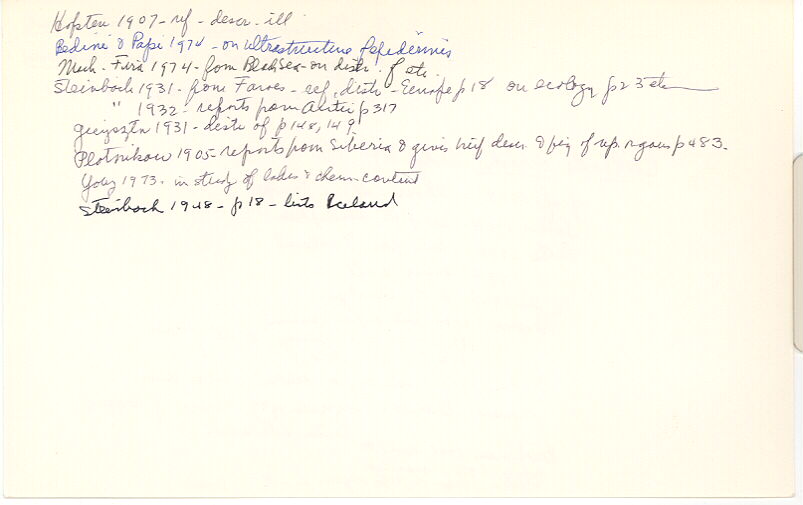 Hofsten 1907 - ref - descr - ill
Bedini & Papi 1974 - on ultrastructure of epidermis
Mack-Fira 1974 - from Black Sea - on distr. of etc.
Steinbock 1931 - from Faroes - ref, distr - Europe p 18 on ecology p 23 etc
" 1932 - reports from p 317
Gieysztor 1931 - distr of p 148, 149
Plotnikow 1905 - reports from Siberia & gives brief descr. & fig of rep. organs p 483.
Young 1973 - in study of lakes & chem content
Steinbock 1948 - p 18 - lists Iceland